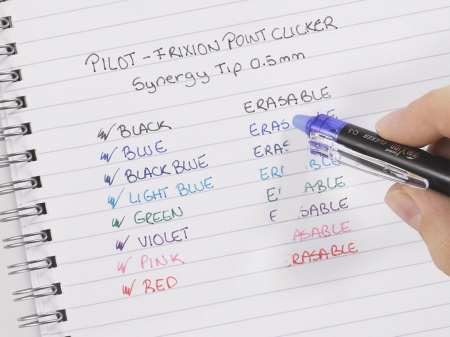 PILOT - FRIXION POINT CLICKER
Synergy Tip 0.5mm
BLACK ERASABLE
BLUE ERAS LE
BLACK BLUE ERAS
LIGHT BLUE ER BLE
GREEN E ABLE
VIOLET E SABLE
PINK ASABLE
RED RASABLE
FriXion CLICKER 0.5